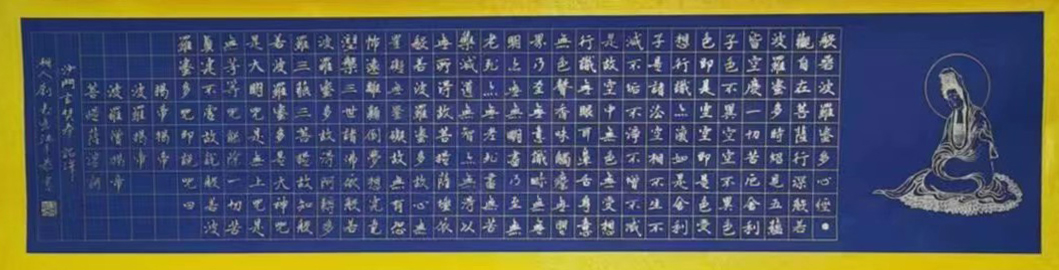 般若波羅蜜多心經
觀自在菩薩行深般若
波羅蜜多時照見五蘊
皆空度一切苦厄舍利
子色不異空空不異色
色即是空空即是色受
想行識亦復如是舍利
子是諸法空相不生不
滅不垢不淨不增不減
是故空中無色無受想
行識無眼耳鼻舌身意
無色聲香味觸法無眼
界乃至無意識界無無
明亦無無明盡乃至無
老死亦無老死盡無苦
集滅道無智亦無得以
無所得故菩提薩埵依
般若波羅蜜多故心無
罣礙無罣礙故無有恐
怖遠離顛倒夢想究竟
涅槃三世諸佛依般若
波羅蜜多故得阿耨多
羅三藐三菩提故知般
若波羅蜜多是大神咒
是大明咒是無上咒是
無等等咒能除一切苦
真實不虛故說般若波
羅蜜多咒即說咒曰
揭帝揭帝
波羅揭帝
波羅僧揭帝
菩提薩婆訶
沙門玄奘奉詔譯